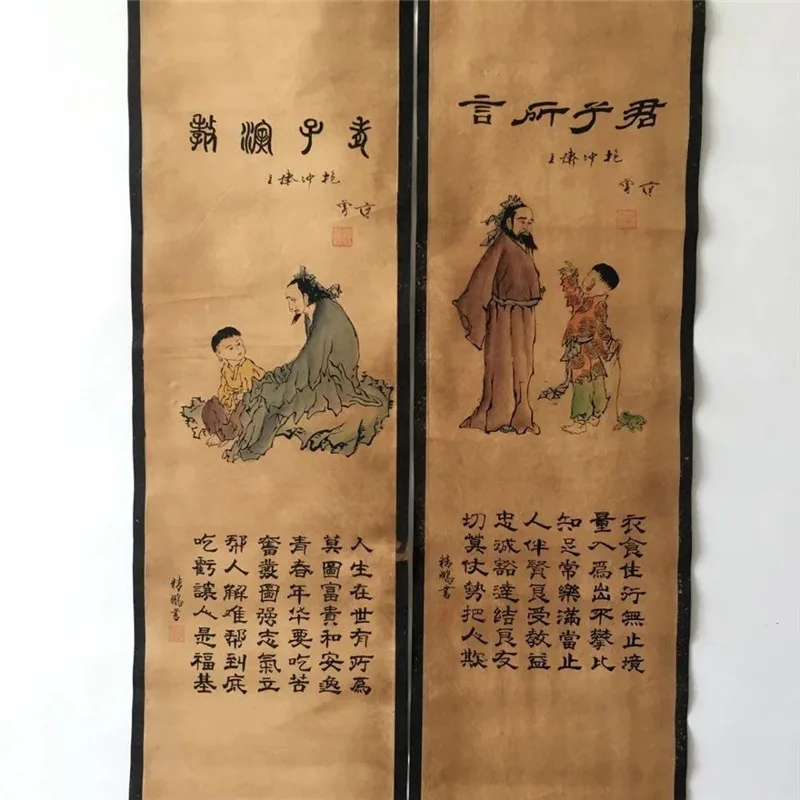 君子所言
范曾
衣食住行無止境
量入為出不攀比
知足常樂滿當止
人伴賢良受教益
忠诚豁達结良友
切莫仗勢把人欺
精鵬書
老子演教
范曾
人生在世有所為
莫圖富貴和安逸
青春年华要吃苦
奮發圖强志氣立
帮人解难帮到底
吃虧讓人是福基
精鵬書